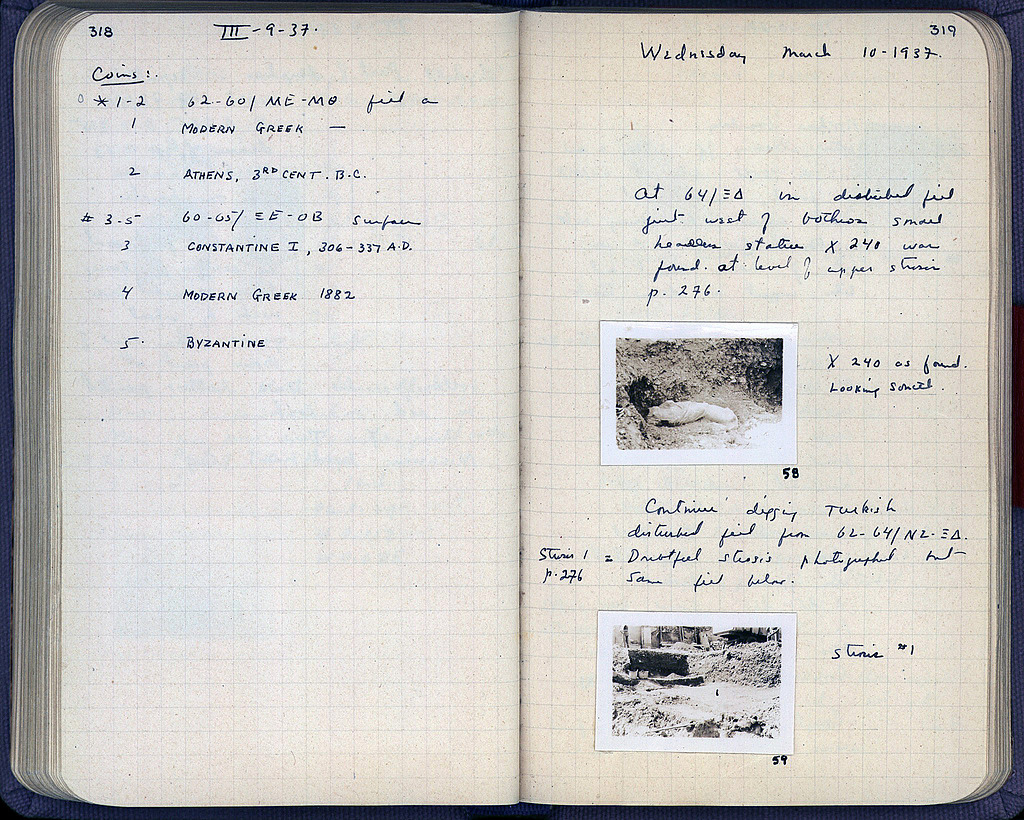 318
III-9-37.
Coins:
* 1-2 62-60/ ΜΕ-ΜΘ fill a
1 MODERN GREEK —
2 ATHENS, 3RD CENT. B.C.
# 3-5 60-65/ ΞΕ-ΟΒ surface
3 CONSTANTINE I, 306-337 A.D.
4 MODERN GREEK 1882
5. BYZANTINE
319
Wednesday March 10-1937.
At 64/ΞΔ in disturbed fill
just west of bothros small
headless statue X 240 was
found. at level of upper strosis
p. 276.
X 240 as found.
Looking South.
58
Continue digging Turkish
disturbed fill from 62-64/ΝΖ-ΞΔ.
Strosis 1 = Doubtful strosis photographed but
p. 276 same fill below.
Strosis #1
59